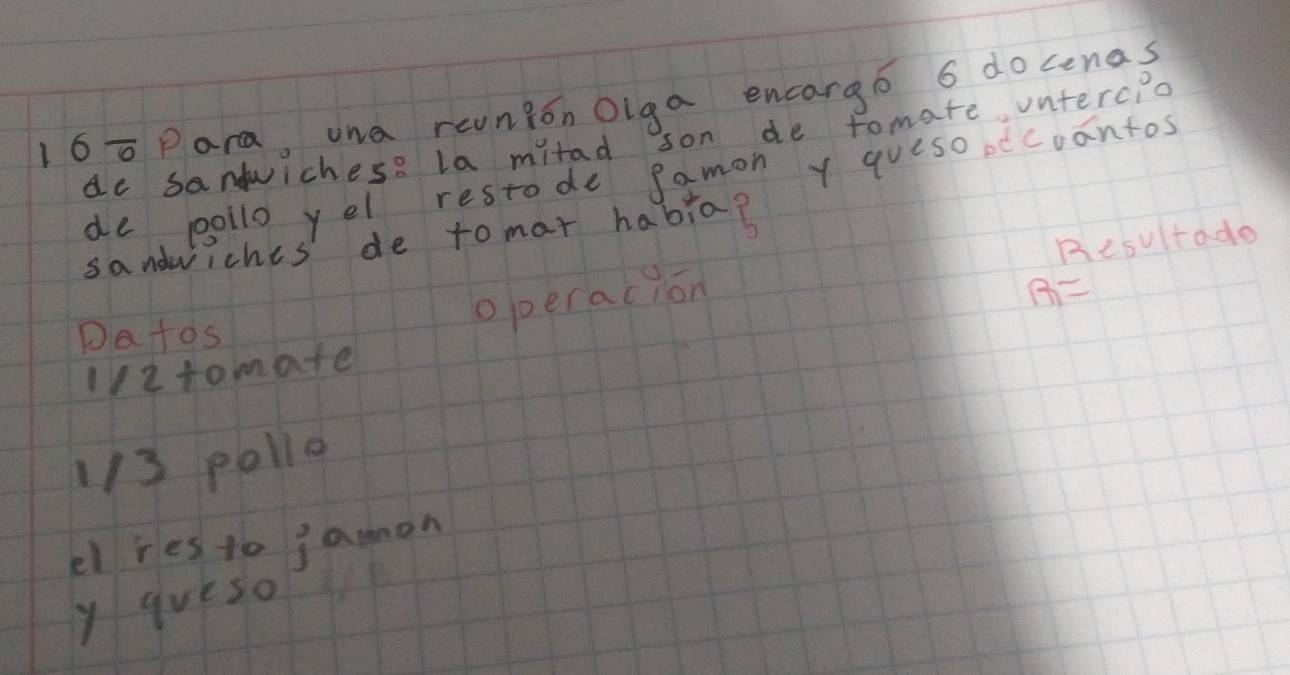 16- Para, una reunión Olga encargó 6 docenas
de sandwiches: la mitad son de tomate, untercio
de pollo y el restode Jamon y queso ¿cuántos
sandwiches de tomar había?
Datos
operación
Resultado
R=
1/2 tomate
1/3 pollo
el resto jamon
y queso